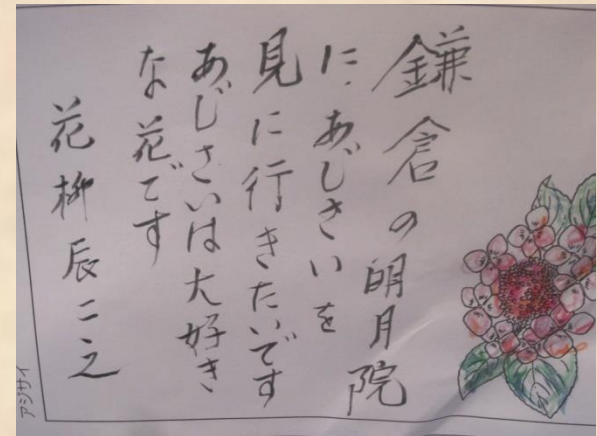 鎌倉の明月院
に、あじさいを
見に行きたいです
あじさいは大好き
な花です
花柳辰二之
アジサイ